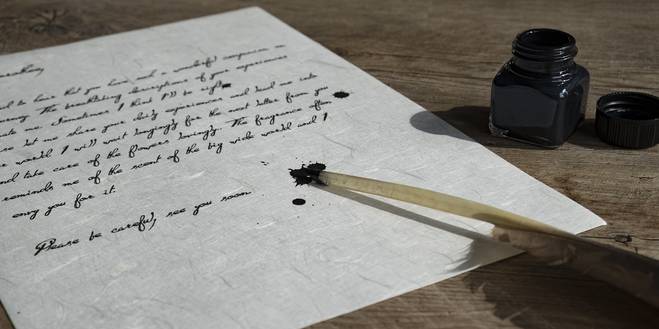 to hear that you have had a wonderful companion on
The breathtaking descriptions of your experiences
me. Sometimes I think I'll be right
let me share your day's experiences and lead me into
world I will wait longingly for the next letter from you
take care of the flowers lovingly. The fragrance often
reminds me of the scent of the big wide world and I
envy you for it.
Please be careful, see you soon.